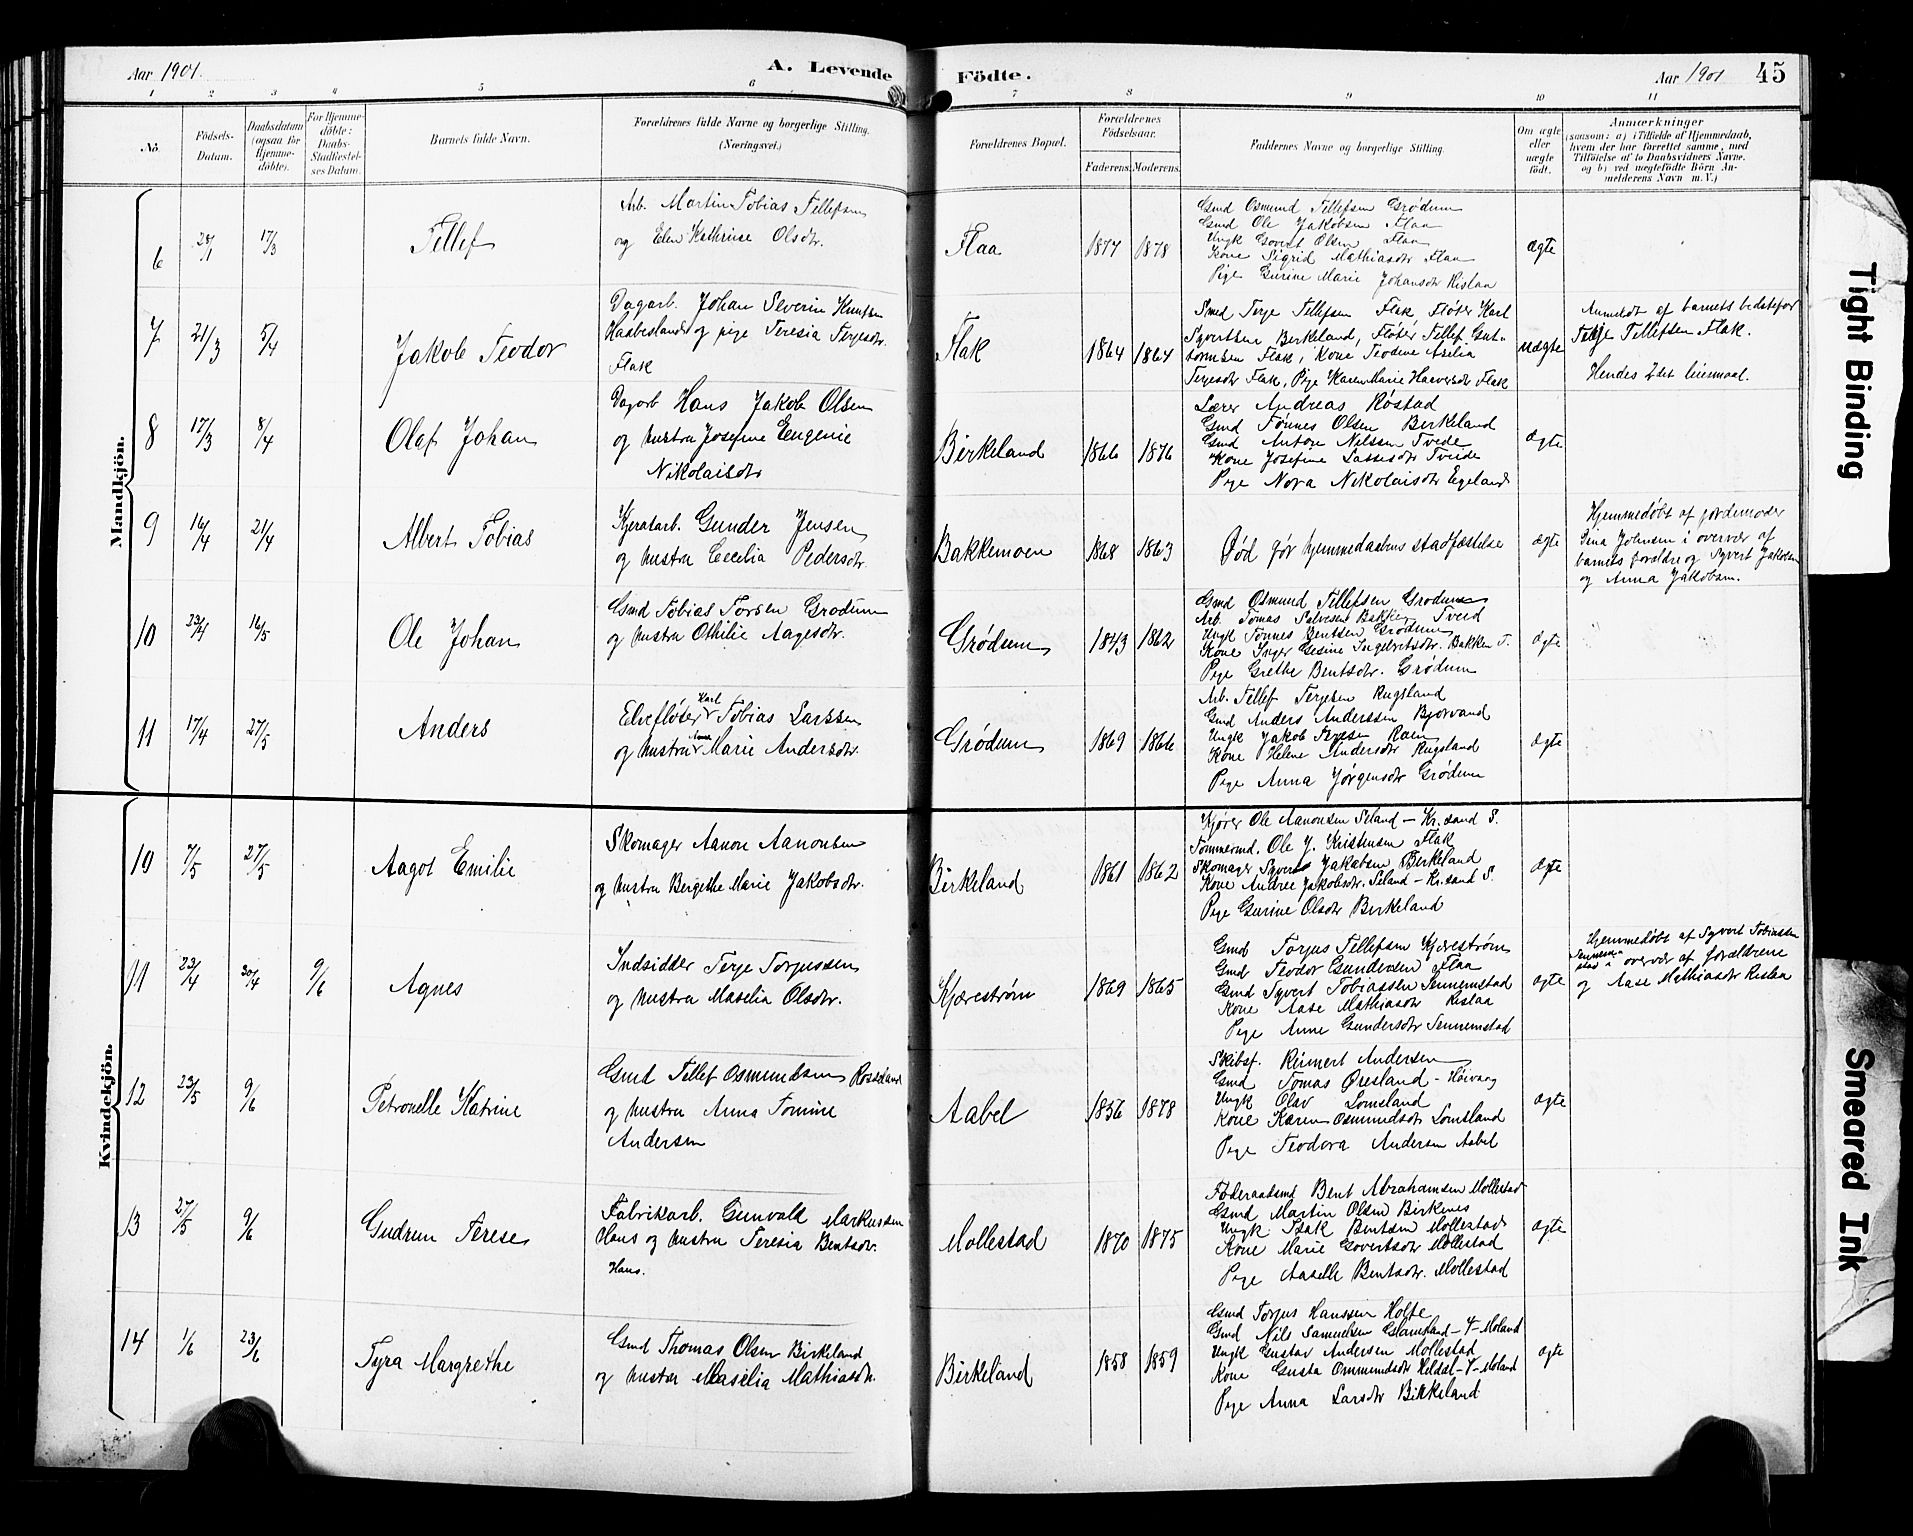 Aar 1901.
A. Levende
Födte.
Aar 1901
45
1 2 3 4 5 6 7 8 9 10 11
No.
Födsels-
Datum.
Daabsdatum
(ogsaa for
Hjemme-
döbte).
For Hjemme-
döbte:
Daabs-
Stadfæstel-
ses Datum.
Barnets fulde Navn.
Forældrenes fulde Navne og borgerlige Stilling.
(Næringsvei.)
Forældrenes Bopæl.
Forældrenes
Födselsaar.
Faderens. Moderens.
Faddernes Navne og borgerlige Stilling.
Om ægte
eller
uægte
födt.
Anmærkninger
(saasom: a) i Tilfælde af Hjemmedaab,
hvem der har forrettet samme, med
Tilföielse af to Daabsvidners Navne.
og b) ved uægtefödte Börn An-
melderens Navn m. V.)
Mandkjön.
6
17/3
Tellef
Arb. Martin Tobias Tellefsen
og Elen Kathrine Olsdtr.
Flaa
1877 1878
Gmd Osmund Tellefsen Grødum
Gmd Ole Jakobsen Flaa
Ungk Govert Olsen Flaa
Kone Sigrid Mathiasdtr Flaa
Pige Gurine Marie Johansdtr Rislaa
ægte
7
21/3
5/4
Jakob Teodor
Dagarb. Johan Severin Knutsen
Haabesland og pige Teresia Terjesdtr.
Flak
Flak
1864 1864
Smed Terje Tellefsen Flak, Fløter Karl
Syvertsen Birkeland, Fløter Tellef Gut-
tormsen Flak, Kone Teodine Aselia
Terjesdtr Flak, Pige Karen Marie Haaversdtr Flak
uægte
Anmeldt af barnets bedstefar
Terje Tellefsen Flak.
Hendes 2det leiermaal.
8
17/3
8/4
Olaf Johan
Dagarb Hans Jakob Olsen
og hustru Josefine Eugenie
Nikolaisdtr
Birkeland
1866 1876
Lærer Andreas Røstad
Gmd Tønnes Olsen Birkeland
Gmd Anton Nilssen Tveide
Kone Josefine Lassesdtr Tveide
Pige Nora Nikolaisdtr Egeland
ægte
9
16/4
21/4
Albert Tobias
Kjeratarb. Gunder Jensen
og hustru Cecilia Pedersdtr.
Bakkemoen
1868 1863
Død før hjemmedaabens stadfæstelse
ægte
Hjemmedøbt af jordemoder
Gina Johnsen i overvær af
barnets forældre og Syvert Jakobsen
og Anna Jakobsen.
10
23/4
16/5
Ole Johan
Gmd Tobias Torsen Grødum
og hustru Othilie Aagesdtr.
Grødum
1843 1862
Gmd Osmund Tellefsen Grødum
Arb. Tomas Salvesen Bakken Tveid
Ungk Tønnes Bentsen Grødum
Kone Inger Gesine Ingebretsdtr. Bakken T.
Pige Grethe Bentsdtr. Grødum
ægte
11
17/4
27/5
Anders
Karl
Elvefløter Tobias Larssen
og hustru Marie Andersdtr.
Grødum
1869 1866
Arb. Tellef Terjesen Rugsland
Gmd Anders Anderssen Bjorvand
Ungk Jakob Ivesen Ruen
Kone Helene Andersdtr Rugsland
Pige Anna Jørgensdtr Grødum
ægte
Kvindekjön.
10
7/5
27/5
Aagot Emilie
Skomager Aanon Aanonsen
og hustru Bergethe Marie Jakobsdtr.
Birkeland
1861 1862
Kjører Ole Aanonsen Seland - Kr.sand S.
Tømmermd. Ole J. Kristensen Flak
Skomager Syvert Jakobsen Birkeland
Kone Andree Jakobsdtr. Seland - Kr.sand S.
Pige Gurine Olsdtr Birkeland
ægte
11
23/4
30/4
9/6
Agnes
Indsidder Terje Torjussen
og hustru Maselia Olsdtr.
Kjærestrøm
1869 1865
Gmd Torjus Tellefsen Kjærestrøm
Gmd Teodor Gundersen Flaa
Gmd Syvert Tobiassen Sennemstad
Kone Aase Mathiasdtr Rislaa
Pige Anne Gundersdtr Sennemstad
ægte
Hjemmedøbt af Syvert Tobiassen
Sennem-
stad i overvær af forældrene
og Aase Mathiasdtr Rislaa
12
23/5
9/6
Petronelle Katrine
Gmd Tellef Osmundsen Rosseland
og hustru Anna Tomine
Andersen
Aabel
1856 1878
Skibsf. Reinert Andersen
Gmd Tomas Øresland - Høivaag
Ungk Olav Lomsland
Kone Karen Osmundsdtr Lomsland
Pige Teodora Andersen Aabel
ægte
13
27/5
9/6
Gudrun Terese
Fabrikarb. Gunvald Markussen
Haus og hustru Teresia Bentsdtr.
Haus.
Mollestad
1870 1875
Føderaadsmd Bent Abrahamsen Mollestad
Gmd Martin Olsen Birkenes
Ungk. Isak Bentsen Mollestad
Kone Marie Govertsdtr Mollestad
Pige Aaselle Bentsdtr. Mollestad
ægte
14
1/6
23/6
Tyra Margrethe
Gmd Thomas Olsen Birkeland
og hustru Maselia Mathiasdtr.
Birkeland
1858 1859
Gmd Torjus Hanssen Holte
Gmd Nils Samuelsen Glamsland - V-Moland
Ungk Gustav Andersen Mollestad
Kone Gusta Osmundsdtr Heldal - V-Moland
Pige Anna Larsdtr Birkeland
ægte
Tight Binding
Smeared Ink